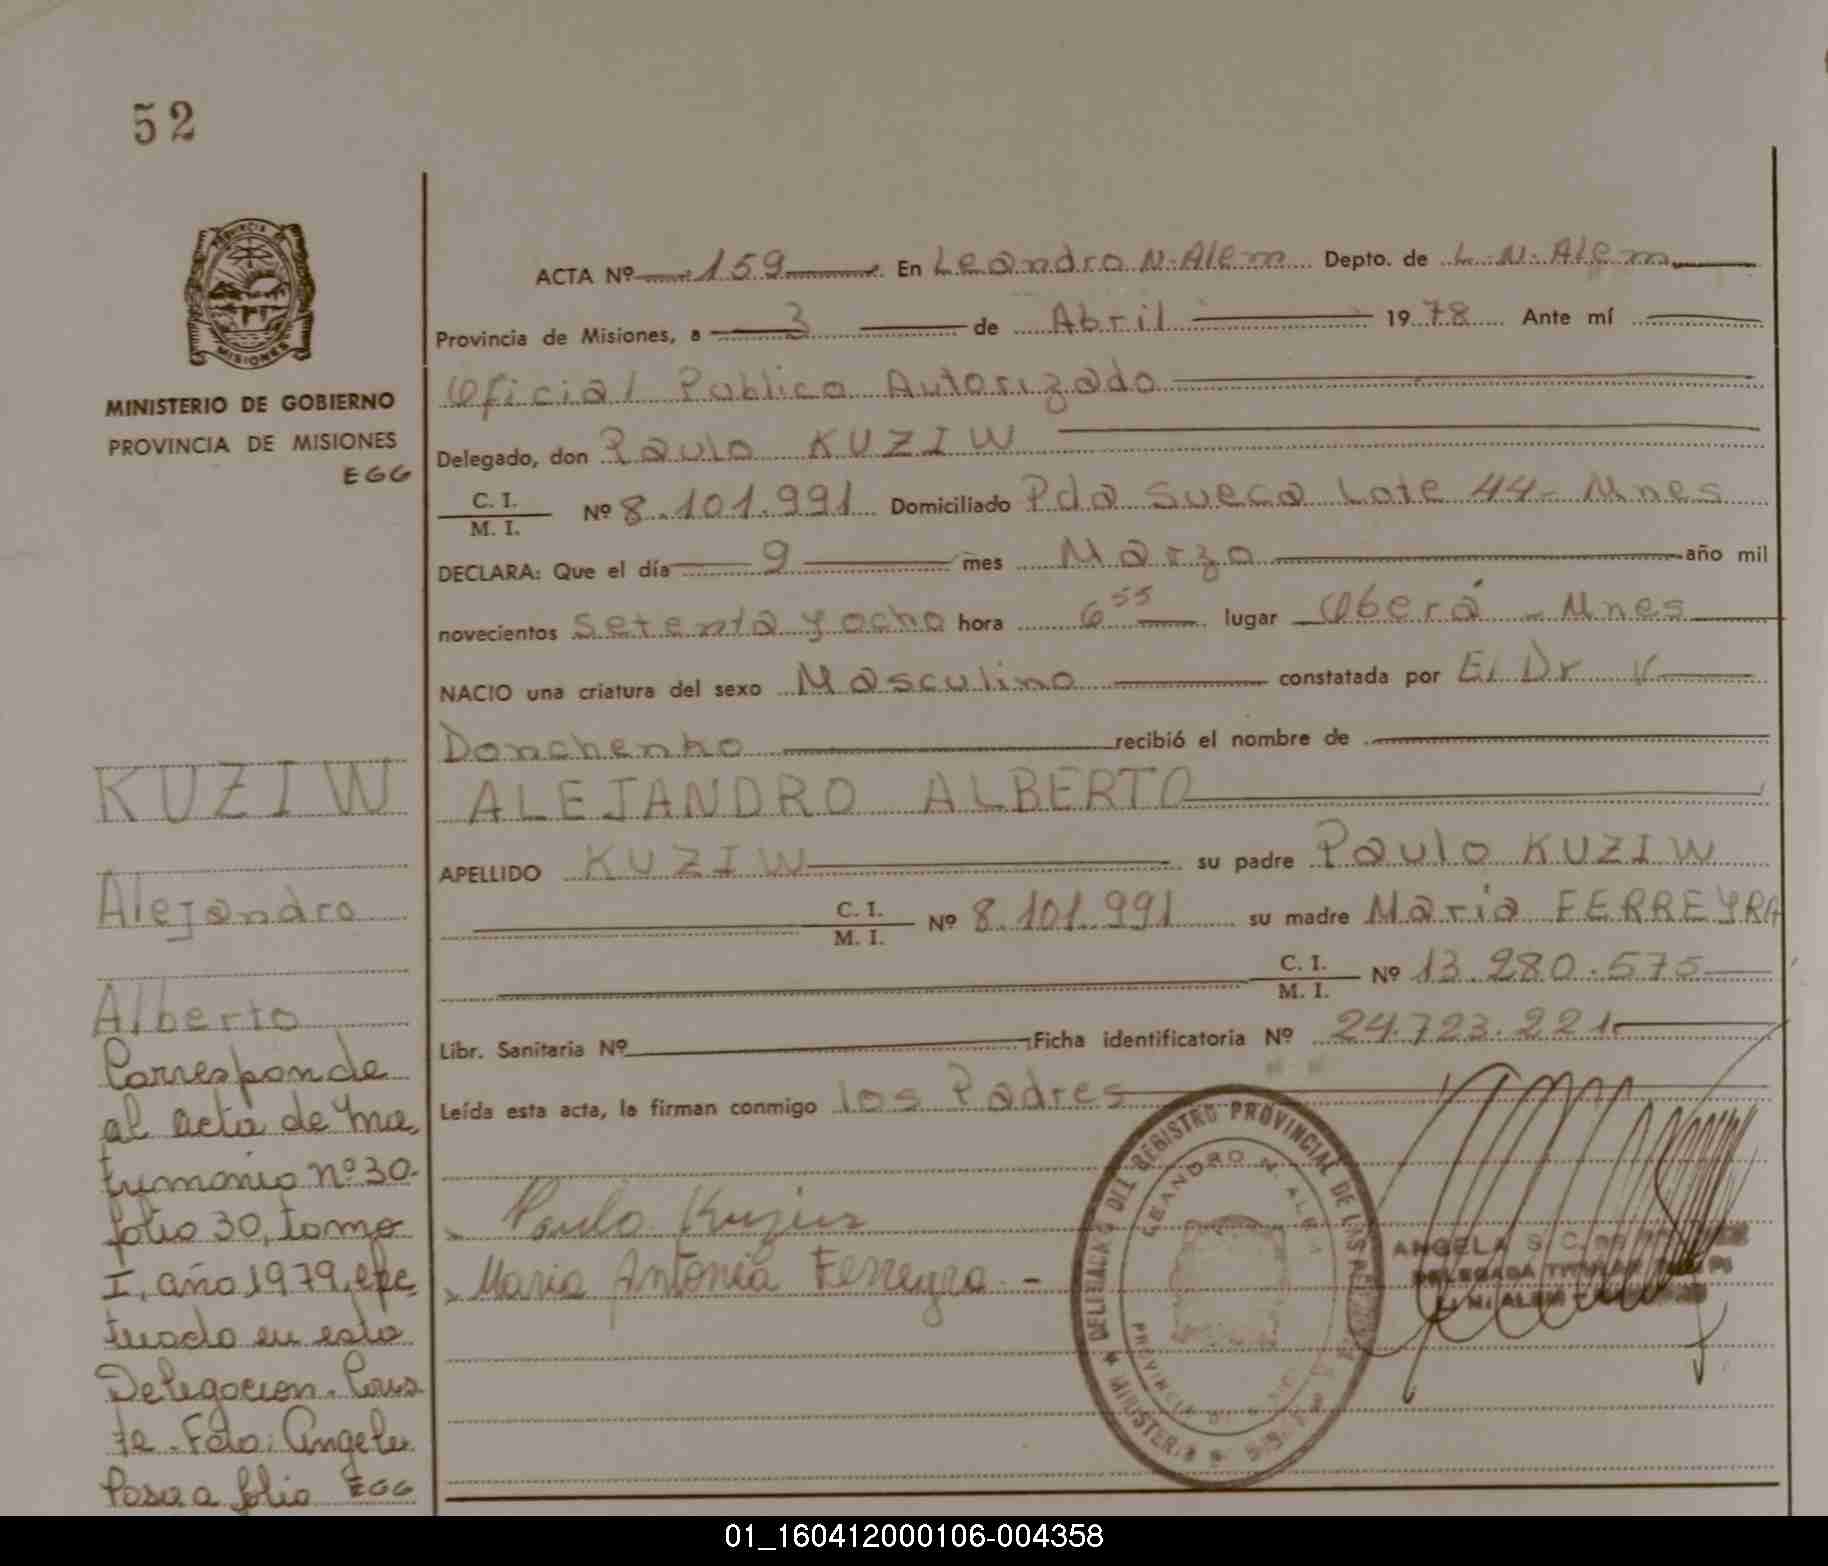 52
PROVINCIA DE
MISIONES
MINISTERIO DE GOBIERNO
PROVINCIA DE MISIONES
EGG
ACTA Nº 159 En Leandro N. Alem Depto. de L. N. Alem
Provincia de Misiones, a 3 de Abril 1978 Ante mí
Oficial Publico Autorizado
Delegado, don Paulo KUZIW
C. I.
M. I. Nº 8.101.991 Domiciliado Pda Sueca Lote 44 - Mnes
DECLARA: Que el día 9 mes Marzo año mil
novecientos setenta y ocho hora 6 55 lugar Oberá - Mnes
NACIO una criatura del sexo Masculino constatada por El Dr V
Donchenko recibió el nombre de
ALEJANDRO ALBERTO
APELLIDO KUZIW su padre Paulo KUZIW
C. I.
M. I. Nº 8.101.991 su madre Maria FERREYRA
C. I.
M. I. Nº 13.280.575
Libr. Sanitaria Nº Ficha identificatoria Nº 24.723.221
Leída esta acta, la firman conmigo los Padres
Paulo Kuziw
Maria Antonia Ferreyra -
KUZIW
Alejandro
Alberto
Corresponde
al acta de ma
trimonio nº 30
folio 30, tomo
I, año 1979, efec
tuado en esta
Delegacion. Cons
te. Fdo: Angela
Pasa a folio EGG
DELEGACIO DEL REGISTRO PROVINCIAL DE LAS
LEANDRO N. ALEM
PROVINCIA
MINISTERIO
ANGELA S. C.
DELEGADA TITULAR
L. N. ALEM
01_160412000106-004358